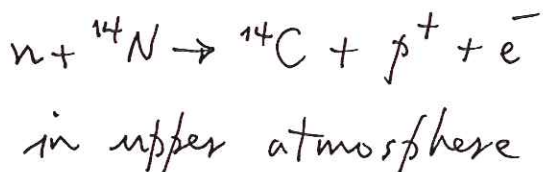 n + ¹⁴N → ¹⁴C + p⁺ + e⁻
in upper atmosphere